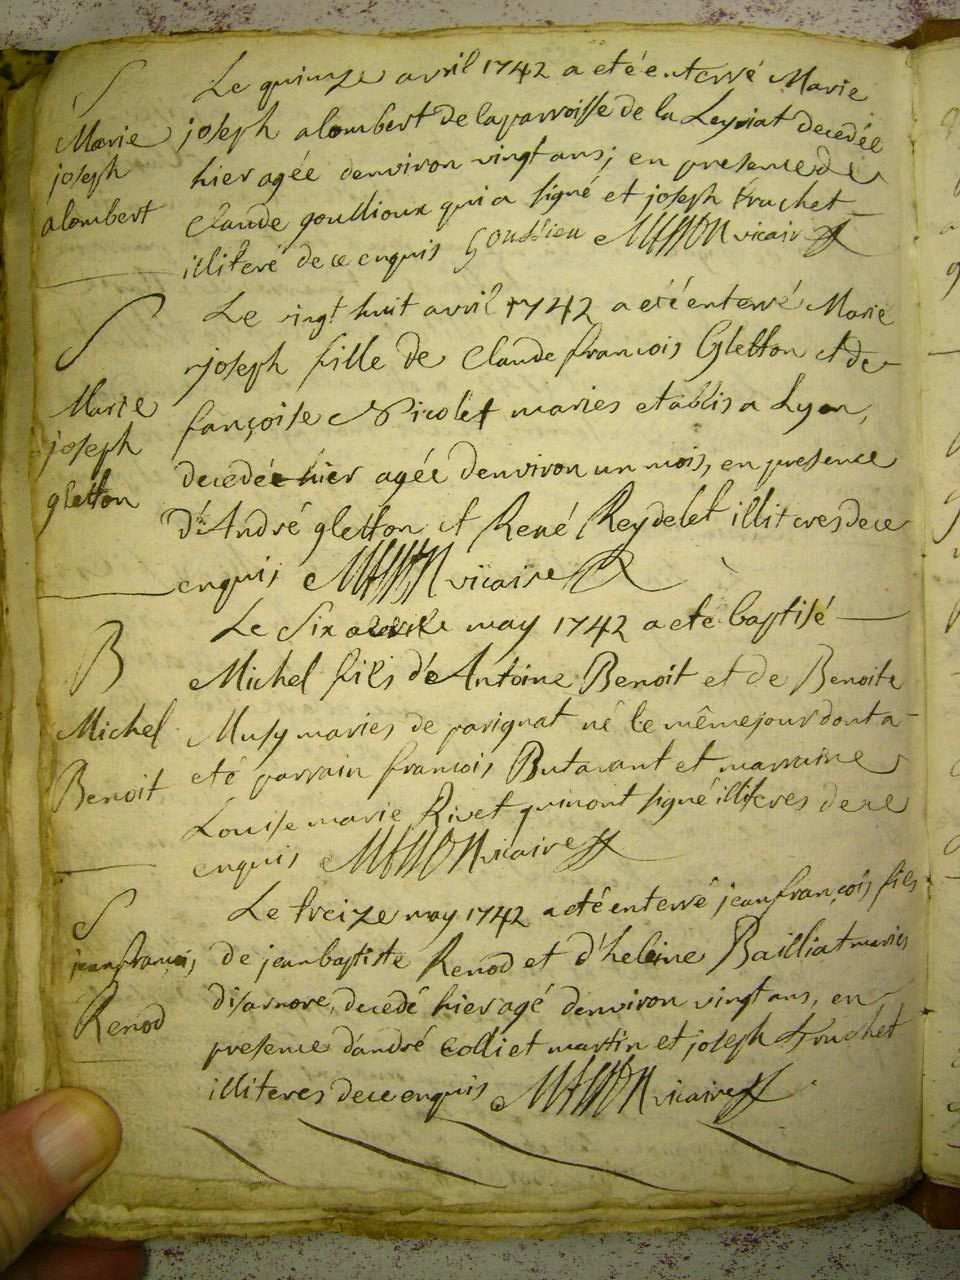 S
Marie
joseph
alombert
Le quinze avril 1742 a eté enterré Marie
joseph alombert de la parroisse de la Leyriat decedée
hier agée denviron vingt ans; en presence de
Claude goullioux qui a signé et joseph truchet
illiteré de ce enquis Goullieu vicaire
S
Marie
joseph
gletton
Le vingt huit avril 1742 a eté enterré Marie
joseph fille de Claude francois Gletton et de
françoise Nicolet maries etablis a Lyon,
decedée hier agée denviron un mois, en presence
d'André gletton et René Reydelet illiteres de ce
enquis vicaire
B
Michel
Benoit
Le Six may 1742 a eté baptisé
Michel fils d'Antoine Benoit et de Benoite
Musy maries de parignat né le même jour dont a
eté parrain francois Butavant et marraine
Louise marie Rivet qui nont signé illiteres de ce
enquis vicaire
S
jean francois
Renod
Le treize may 1742 a eté enterré jean françois fils
de jean baptiste Renod et d'heleine Bailliat maries
disarnore, decedé hier agé denviron vingt ans, en
presence dandré Colliet martin et joseph truchet
illiteres de ce enquis vicaire